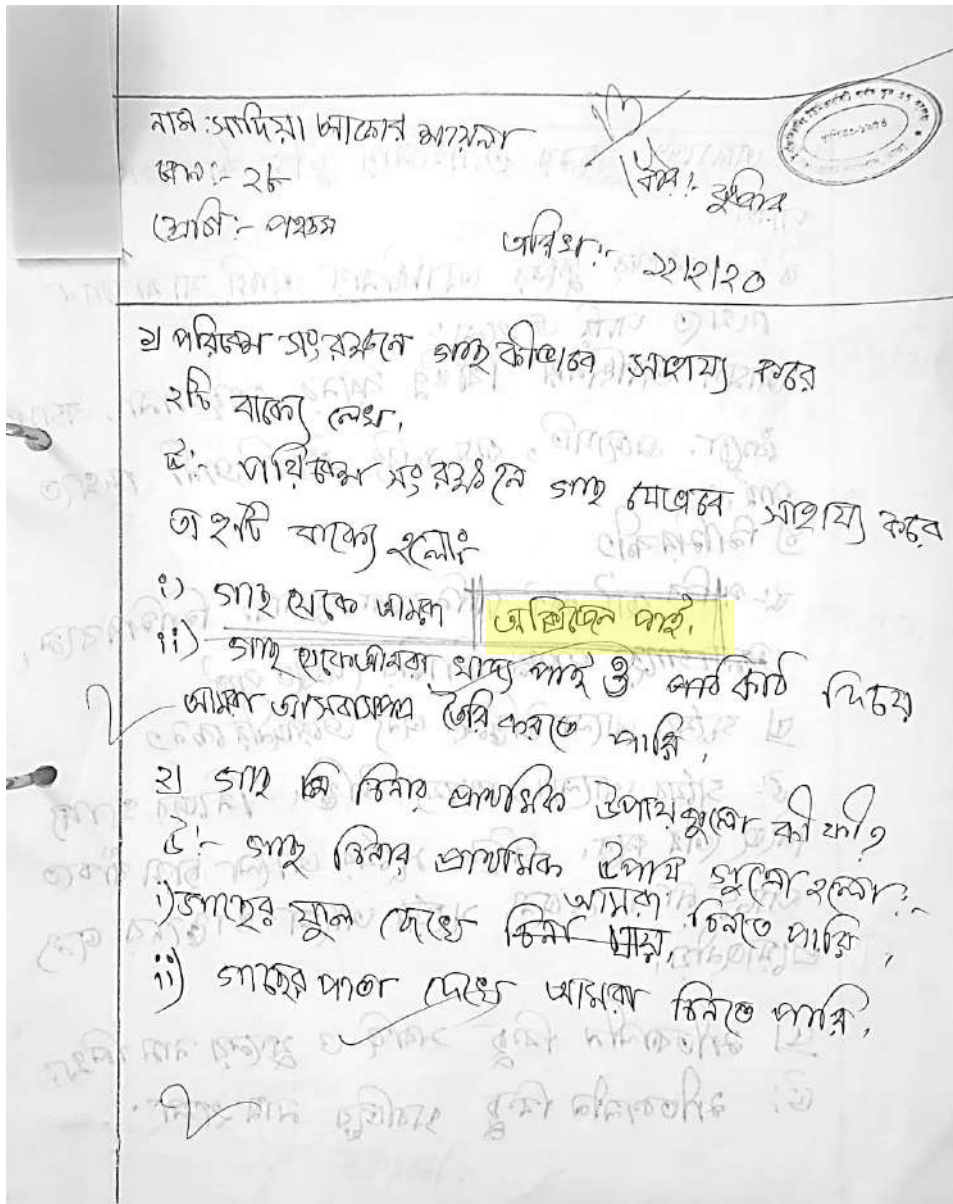 নাম: সাদিয়া আক্তার মায়েদা
রোল:- ২৮
শ্রেণি:- পঞ্চম
বার:- বুধবার
তারিখ:- ১২/২/২০
১) পরিবেশ সংরক্ষনে গাছ কীভাবে সাহায্য করে
২টি বাক্যে লেখ,
উ:- পরিবেশ সংরক্ষনে গাছ যেভাবে সাহায্য করে
তা ২টি বাক্যে হলোঃ
i) গাছ থেকে আমরা অক্সিজেন পাই,
ii) গাছ থেকে আমরা খাদ্য পাই ও কাঠ দিয়ে
আমরা আসবাসপত্র তৈরি করতে পারি,
২) গাছ চিনার প্রাথমিক উপায়গুলো কী কী?
উ:- গাছ চিনার প্রাথমিক উপায় গুলো হলো:-
i) গাছের ফুল দেখে আমরা চিনতে পারি,
ii) গাছের পাতা দেখে আমরা চিনতে পারি,